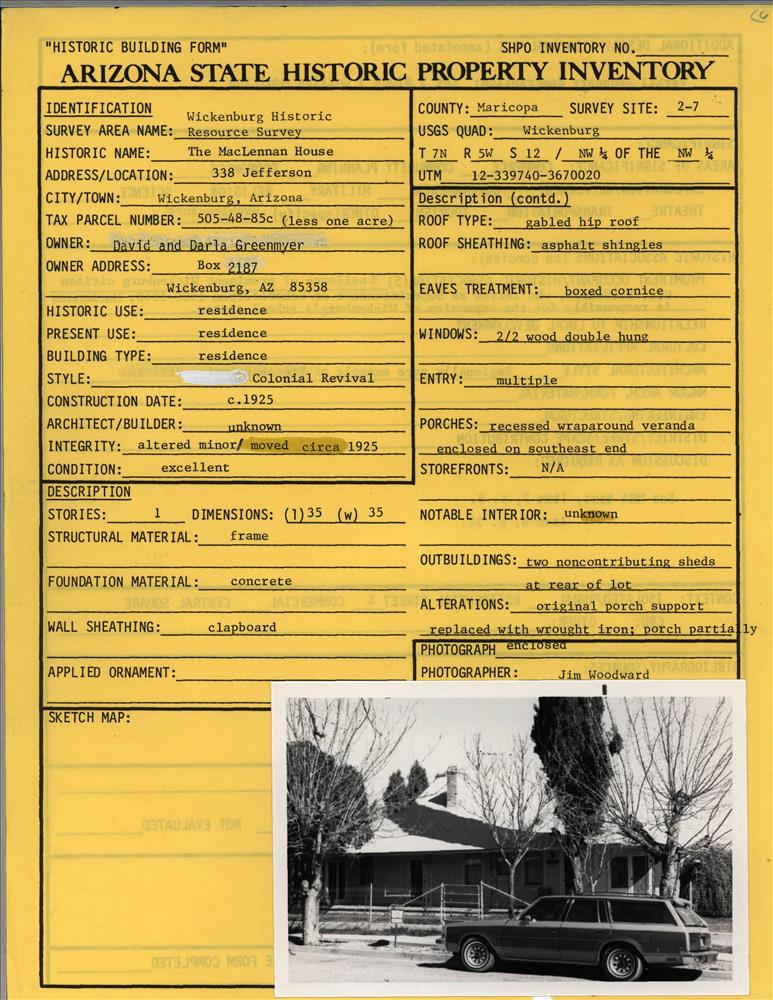 "HISTORIC BUILDING FORM" SHPO INVENTORY NO.
ARIZONA STATE HISTORIC PROPERTY INVENTORY
IDENTIFICATION
SURVEY AREA NAME: Wickenburg Historic
Resource Survey
HISTORIC NAME: The MacLennan House
ADDRESS/LOCATION: 338 Jefferson
CITY/TOWN: Wickenburg, Arizona
TAX PARCEL NUMBER: 505-48-85c (less one acre)
OWNER: David and Darla Greenmyer
OWNER ADDRESS: Box 2187
Wickenburg, AZ 85358
HISTORIC USE: residence
PRESENT USE: residence
BUILDING TYPE: residence
STYLE: Colonial Revival
CONSTRUCTION DATE: c.1925
ARCHITECT/BUILDER: unknown
INTEGRITY: altered minor/ moved circa 1925
CONDITION: excellent
DESCRIPTION
STORIES: 1 DIMENSIONS: (l)35 (w) 35
STRUCTURAL MATERIAL: frame
FOUNDATION MATERIAL: concrete
WALL SHEATHING: clapboard
APPLIED ORNAMENT:
SKETCH MAP:
COUNTY: Maricopa SURVEY SITE: 2-7
USGS QUAD: Wickenburg
T 7N R 5W S 12 / NW ¼ OF THE NW ¼
UTM 12-339740-3670020
Description (contd.)
ROOF TYPE: gabled hip roof
ROOF SHEATHING: asphalt shingles
EAVES TREATMENT: boxed cornice
WINDOWS: 2/2 wood double hung
ENTRY: multiple
PORCHES: recessed wraparound veranda
enclosed on southeast end
STOREFRONTS: N/A
NOTABLE INTERIOR: unknown
OUTBUILDINGS: two noncontributing sheds
at rear of lot
ALTERATIONS: original porch support
replaced with wrought iron; porch partially
enclosed
PHOTOGRAPH
PHOTOGRAPHER: Jim Woodward